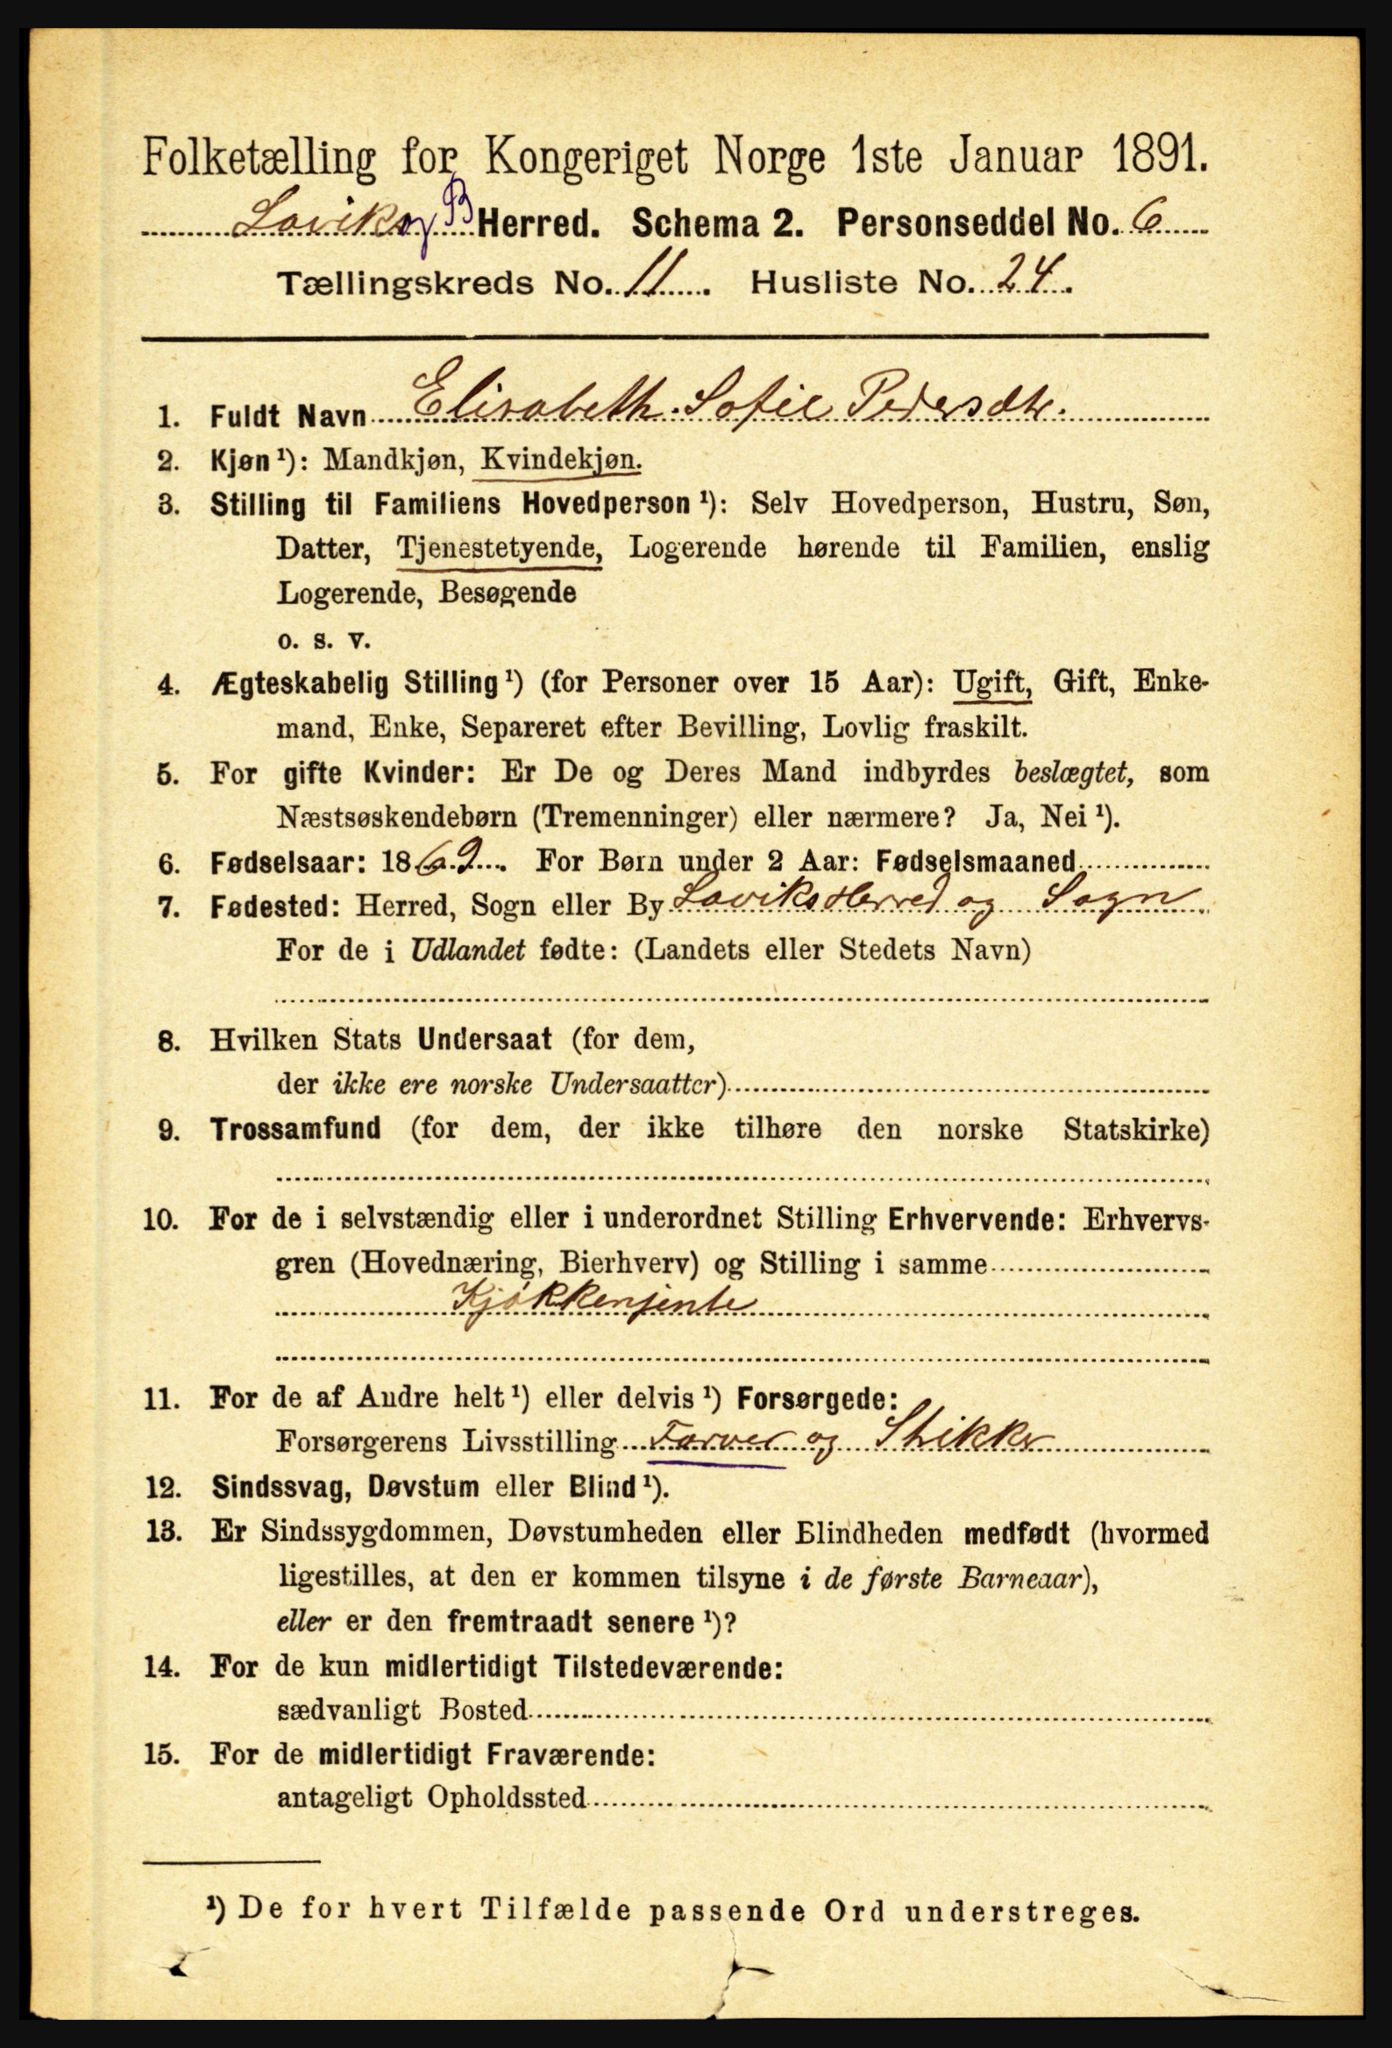 Folketælling for Kongeriget Norge 1ste Januar 1891.
Laviks og B Herred. Schema 2. Personseddel No. 6
Tællingskreds No. 11. Husliste No. 24.
1. Fuldt Navn Elisabeth Sofie Pedersdtr.
2. Kjøn ¹): Mandkjøn, Kvindekjøn.
3. Stilling til Familiens Hovedperson ¹): Selv Hovedperson, Hustru, Søn,
Datter, Tjenestetyende, Logerende hørende til Familien, enslig
Logerende, Besøgende
o. s. v.
4. Ægteskabelig Stilling ¹) (for Personer over 15 Aar): Ugift, Gift, Enke-
mand, Enke, Separeret efter Bevilling, Lovlig fraskilt.
5. For gifte Kvinder: Er De og Deres Mand indbyrdes beslægtet, som
Næstsøskendebørn (Tremenninger) eller nærmere? Ja, Nei ¹).
6. Fødselsaar: 1869. For Børn under 2 Aar: Fødselsmaaned
7. Fødested: Herred, Sogn eller By Laviks Herred og Sogn
For de i Udlandet fødte: (Landets eller Stedets Navn)
8. Hvilken Stats Undersaat (for dem,
der ikke ere norske Undersaatter)
9. Trossamfund (for dem, der ikke tilhøre den norske Statskirke)
10. For de i selvstændig eller i underordnet Stilling Erhvervende: Erhvervs-
gren (Hovednæring, Bierhverv) og Stilling i samme
Kjøkkenjente
11. For de af Andre helt ¹) eller delvis ¹) Forsørgede:
Forsørgerens Livsstilling Farver og Strikker
12. Sindssvag, Døvstum eller Blind ¹).
13. Er Sindssygdommen, Døvstumheden eller Blindheden medfødt (hvormed
ligestilles, at den er kommen tilsyne i de første Barneaar),
eller er den fremtraadt senere ¹)?
14. For de kun midlertidigt Tilstedeværende:
sædvanligt Bosted
15. For de midlertidigt Fraværende:
antageligt Opholdssted
¹) De for hvert Tilfælde passende Ord understreges.